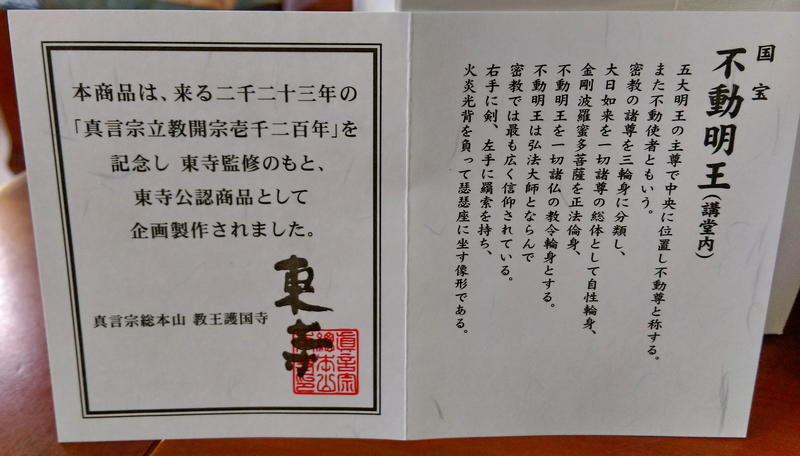 国宝
不動明王(講堂内)
五大明王の主尊で中央に位置し不動尊と称する。
また不動使者ともいう。
密教の諸尊を三輪身に分類し、
大日如来を一切諸尊の総体として自性輪身、
金剛波羅蜜多菩薩を正法倫身、
不動明王を一切諸仏の教令輪身とする。
不動明王は弘法大師とならんで
密教では最も広く信仰されている。
右手に剣、左手に羂索を持ち、
火炎光背を負って瑟瑟座に坐す像形である。
本商品は、来る二千二十三年の
「真言宗立教開宗壱千二百年」を
記念し 東寺監修のもと、
東寺公認商品として
企画製作されました。
真言宗総本山 教王護国寺
東寺